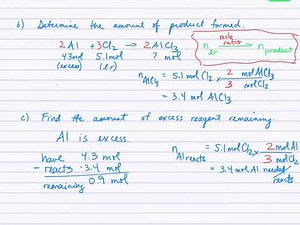 b) Determine the amount of product formed.
2Al + 3Cl₂ → 2AlCl₃
4.3mol 5.1mol ? mol
(excess) (l.r)
n l.r → mole ratio → n product
n AlCl₃ = 5.1 mol Cl₂ × 2 mol AlCl₃ / 3 mol Cl₂
= 3.4 mol AlCl₃
c) Find the amount of excess reagent remaining.
Al is excess.
have 4.3 mol
- reacts -3.4 mol
remaining 0.9 mol
n Al reacts = 5.1 mol Cl₂ × 2 mol Al / 3 mol Cl₂
= 3.4 mol Al needed/reacts